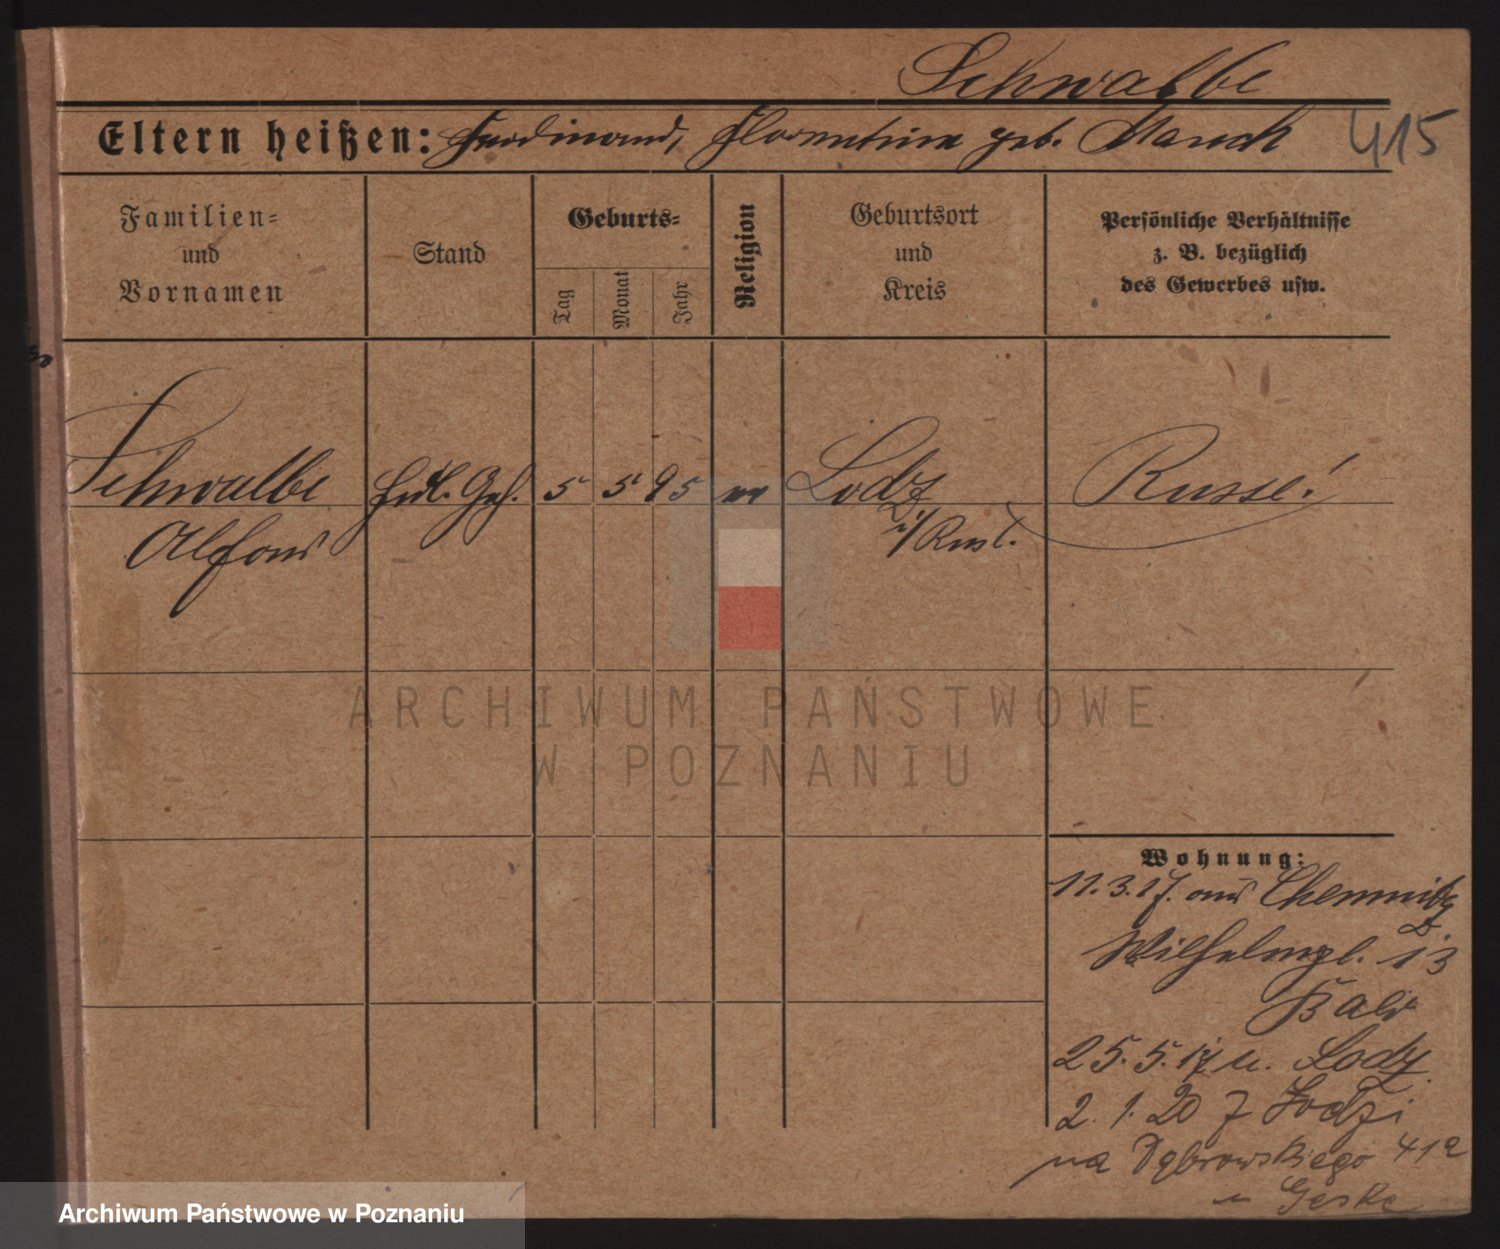 Schwalbe
Eltern heißen: Ferdinand, Florentine geb. Mauch
415
Familien- und Vornamen
Stand
Geburts-
Tag
Monat
Jahr
Religion
Geburtsort und Kreis
Persönliche Verhältnisse z. B. bezüglich des Gewerbes usw.
Schwalbe Hdl. Geh. 5 5 95 Lodz Russe!
Alfons i/Russl.
ARCHIWUM PAŃSTWOWE
W POZNANIU
Wohnung:
11.3.17. aus Chemnitz
Wilhelmpl. 13
25.5.17 n. Lodz
2. 1. 20 z Łodzi
na Dąbrowskiego 41a
u
Archiwum Państwowe w Poznaniu